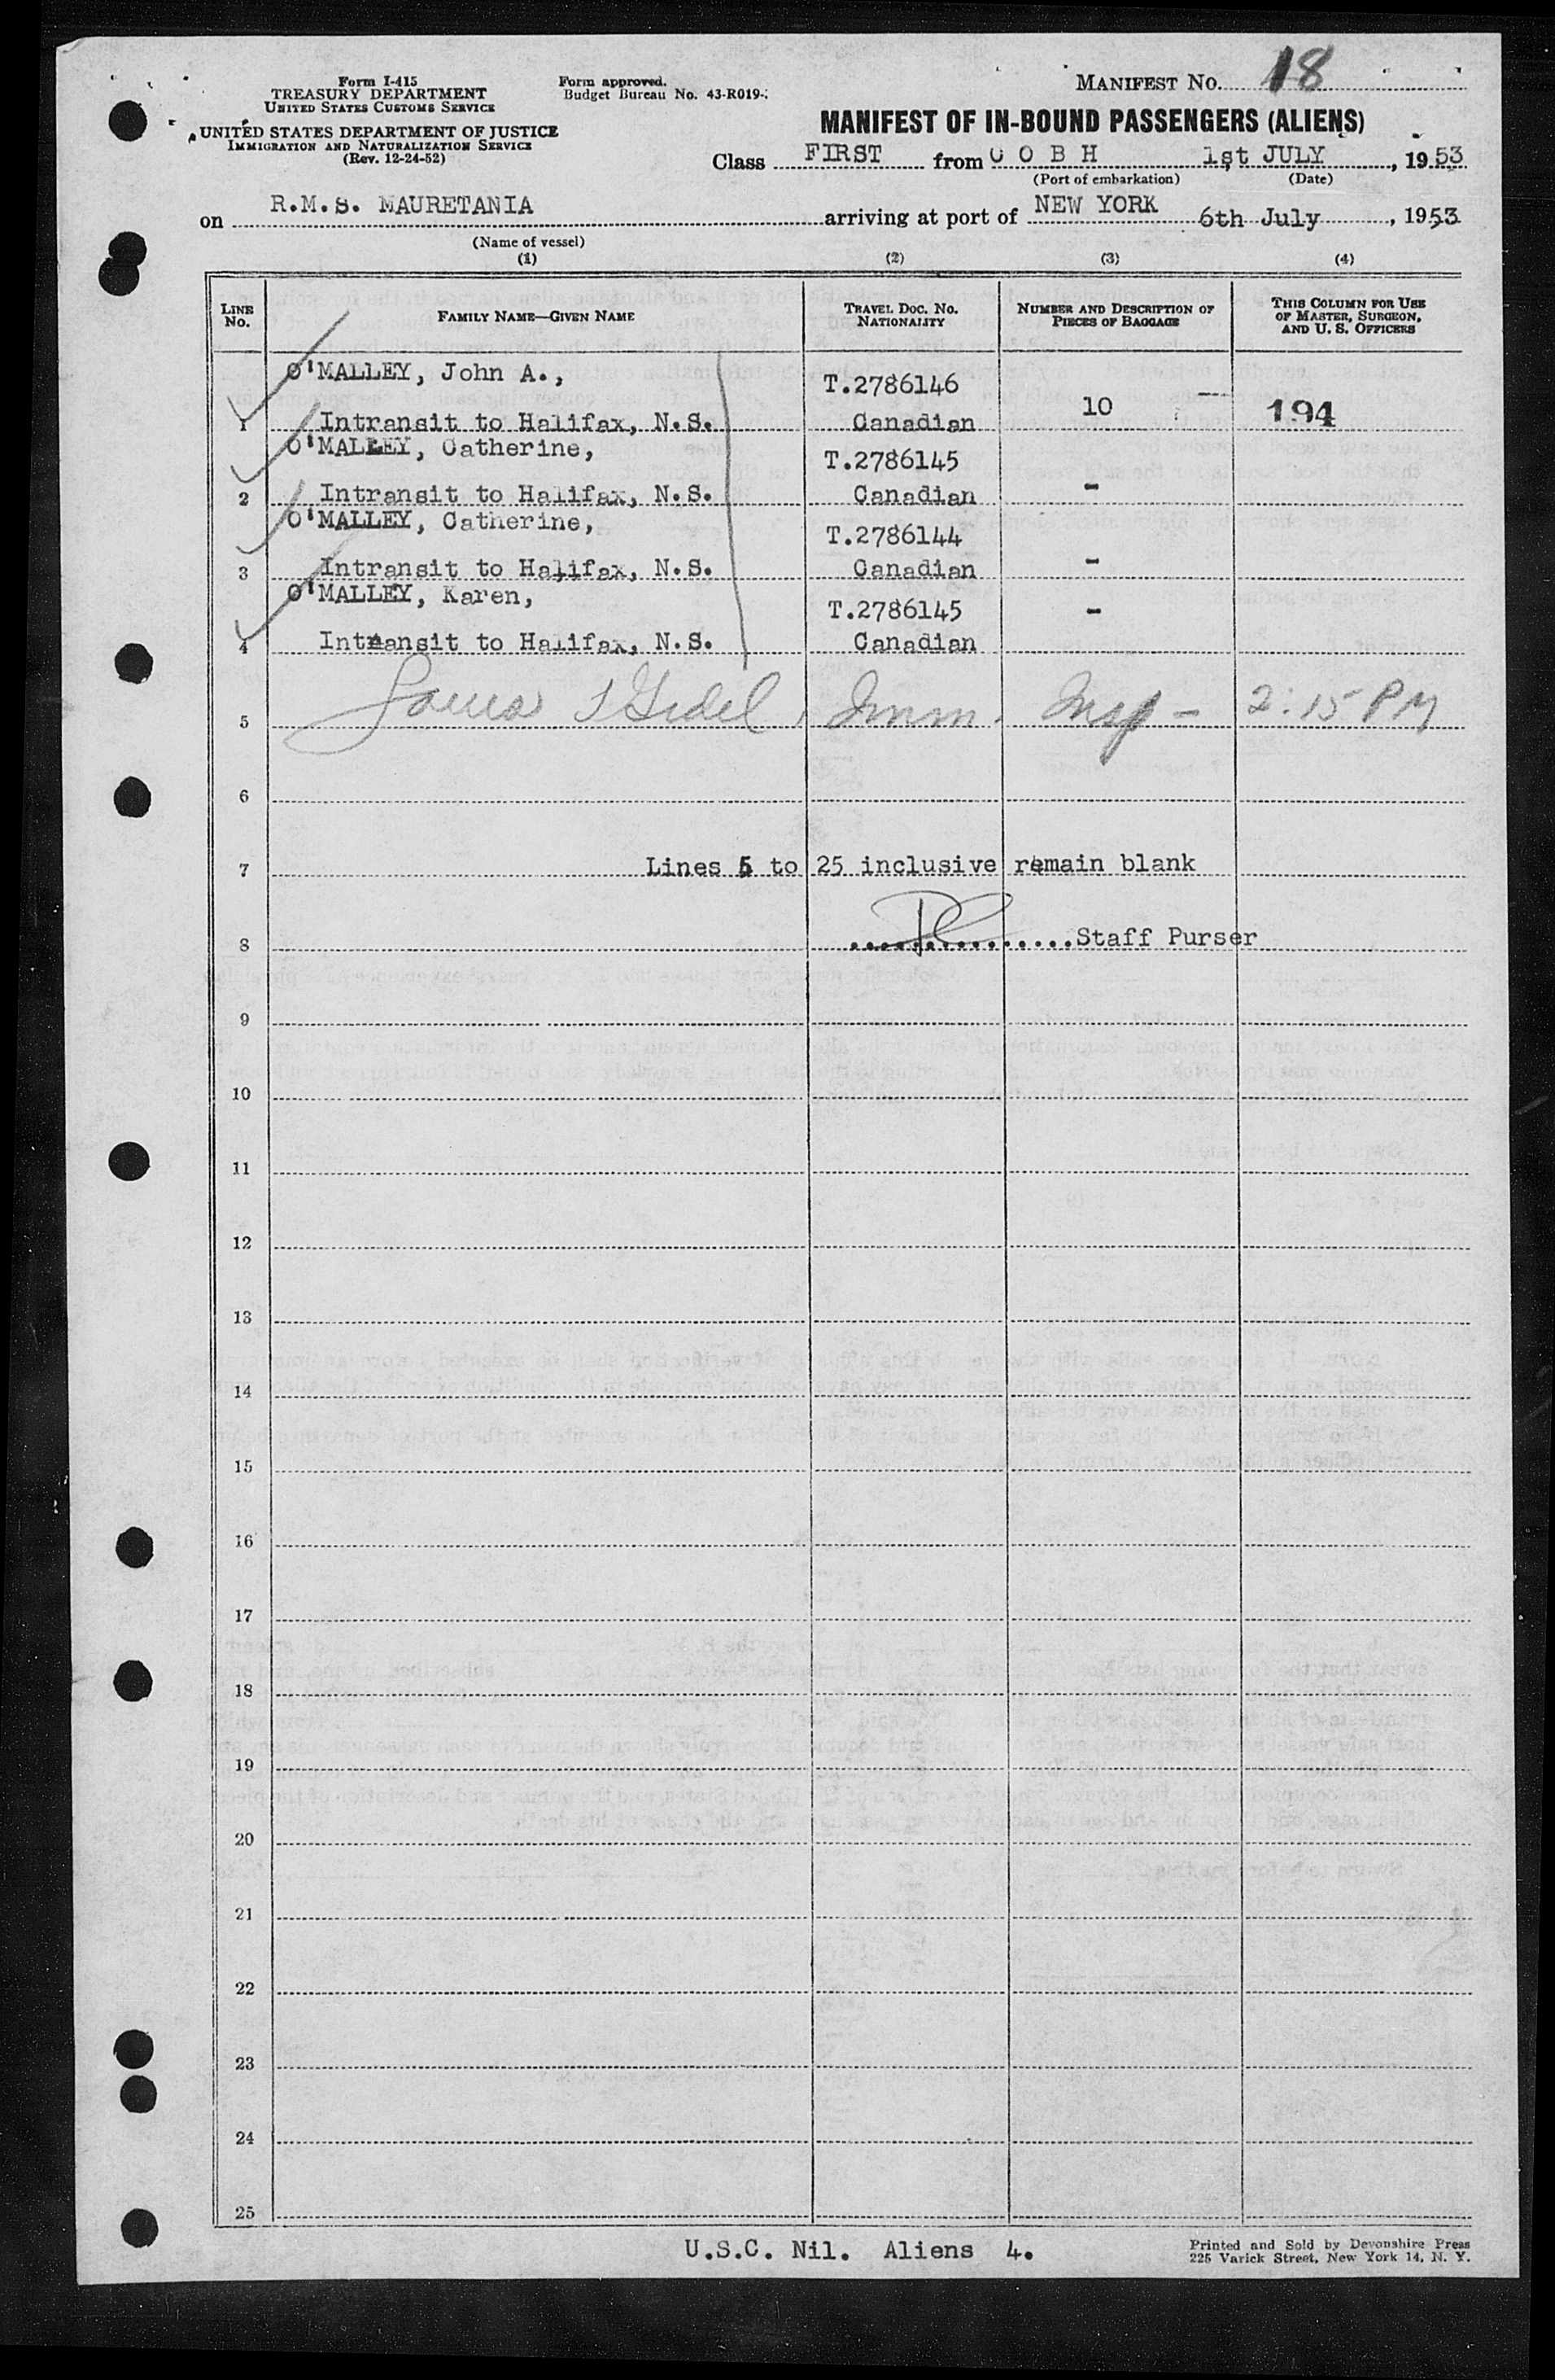 Form I-415
TREASURY DEPARTMENT
UNITED STATES CUSTOMS SERVICE
UNITED STATES DEPARTMENT OF JUSTICE
IMMIGRATION AND NATURALIZATION SERVICE
(Rev. 12-24-52)
Form approved.
Budget Bureau No. 43-R019-
MANIFEST No. 18
MANIFEST OF IN-BOUND PASSENGERS (ALIENS)
Class FIRST from COBH 1st JULY, 1953
(Port of embarkation) (Date)
on R.M.S. MAURETANIA arriving at port of NEW YORK 6th July, 1953
(Name of vessel)
(1) (2) (3) (4)
LINE No. FAMILY NAME—GIVEN NAME TRAVEL DOC. NO. NATIONALITY NUMBER AND DESCRIPTION OF PIECES OF BAGGAGE THIS COLUMN FOR USE OF MASTER, SURGEON, AND U. S. OFFICERS
O'MALLEY, John A., T.2786146
1 Intransit to Halifax, N.S. Canadian 10 194
O'MALLEY, Catherine, T.2786145
2 Intransit to Halifax, N.S. Canadian -
O'MALLEY, Catherine, T.2786144
3 Intransit to Halifax, N.S. Canadian -
O'MALLEY, Karen, T.2786145
4 Intransit to Halifax, N.S. Canadian -
5 Imm. Insp - 2:15 PM
6
7 Lines 5 to 25 inclusive remain blank
8 Staff Purser
9
10
11
12
13
14
15
16
17
18
19
20
21
22
23
24
25
U.S.C. Nil. Aliens 4.
Printed and Sold by Devonshire Press
225 Varick Street, New York 14, N. Y.